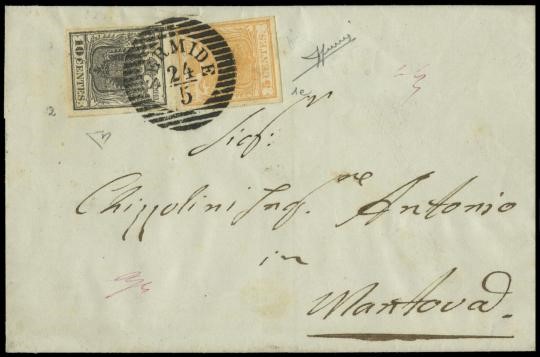 10 CENTES.
5 CENTES.
ERMIDE
24
5
2
1e
Sig:r
Chizzolini Ing.re Antonio
in
Mantova.